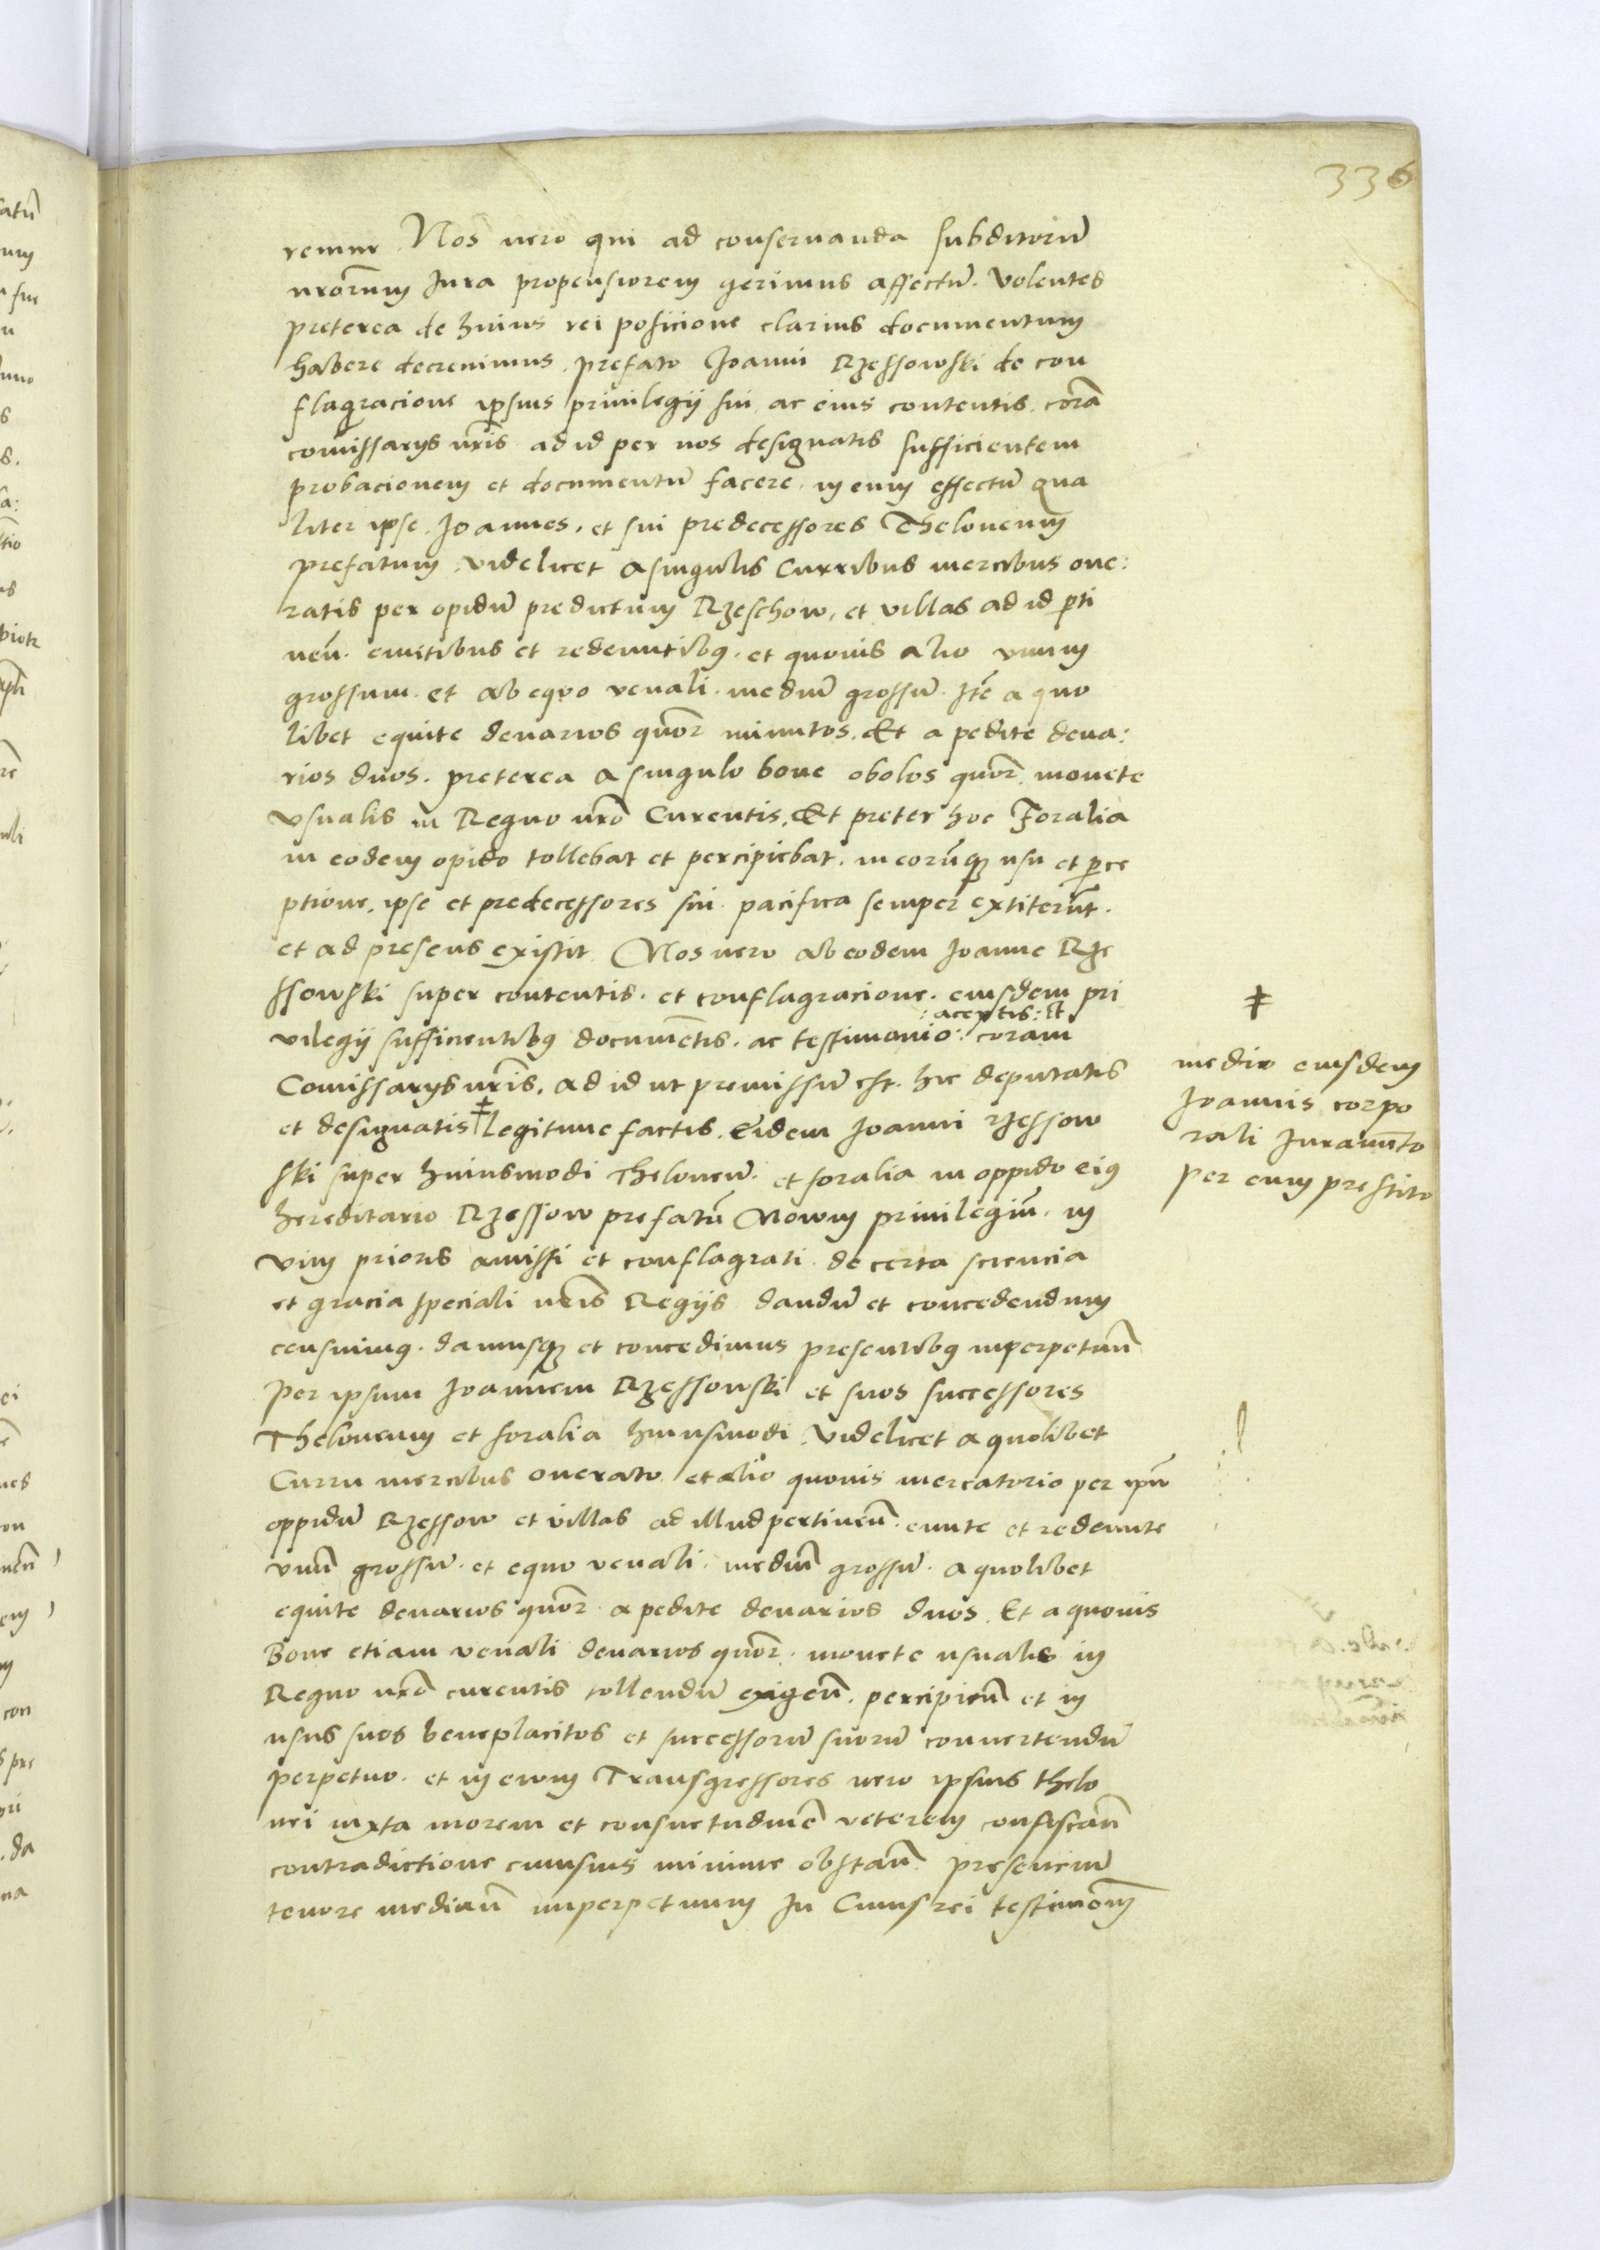 336
remur Nos vero qui ad conservanda subditorū
nrōrum Jura propensiorem gerimus affectū. Volentes
preterea de huius rei posicione clarius documentum
habere decrevimus. prefato Joanni Rzessowski de con
flagracione ipsius privilegij sui ac eius contentis. corā
comissarys nrīs ad id per nos designatis sufficientem
probacionem et documentū facere. in eum effectū qua
liter ipse Joannes. et sui predecessores Theloneum
prefatum. videlicet a singulis Curribus mercibus one:
ratis per opidū predictum Rzeschow. et villas ad id pti
neñ. euntibus et redeuntibꝯ. et quovis alio unum
grossum. et ab equo venali. mediū grossū. Jtē a quo
libet equite denarios quōr minutos. Et a pedite dena:
rios duos. preterea a singulo bove obolos quōr. monete
usualis in Regno nrō Curentis. Et preter hoc Foralia
in eodem opido tollebat et percipiebat. in eorūqꝫ usu et perce
ptione. ipse et predecessores sui pacifica semper extiterūt.
et ad presens existit. Nos vero ab eodem Joanne Rze
ssowski super contentis. et conflagracione. eiusdem pri
: aceptis: Et
vilegij sufficientibꝯ documētis. ac testimonio: coram
Comissarys nrīs. ad id ut premissū est. hic deputatis
et designatis ‡ legitime factis. Eidem Joanni Rzessow
ski super huiusmodi Theloneū. et foralia in oppido eiꝯ
hereditario Rzessow prefatū Novum privilegiū. in
vim prioris amissi et conflagrati. de certa sciencia
et gracia speciali nrīs Regijs dandū et concedendum
censuimꝯ. damusqꝫ et concedimus presentibꝯ inperpetuū
per ipsum Joannem Rzessowski et suos successores
Theloneum et foralia huiusmodi. Videlicet a quolibet
Curru mercibus onerato et alio quovis mercatorio per ipm̄
oppidū Rzessow et villas ad illud pertineñ. eunte et redeunte
unū grossū. et equo venali. mediū grossū. a quolibet
equite denarios quōr. a pedite denarios duos. Et a quovis
Bove etiam venali denarios quōr. monete usualis in
Regno nrō curentis tollendū exigeñ. percipieñ et in
usus suos beneplacitos et successorū suorū convertendū
perpetuo. et in evum Transgressores vero ipsius thelo
nei iuxta morem et consuetudinē veterem confiscañ
contradictione cuiusvis minime obstañ. presencium
tenore medianū inperpetuum Jn Cuius rei testimoniū
‡
medio eiusdem
Joannis corpo
rali Juramento
per eum prestito